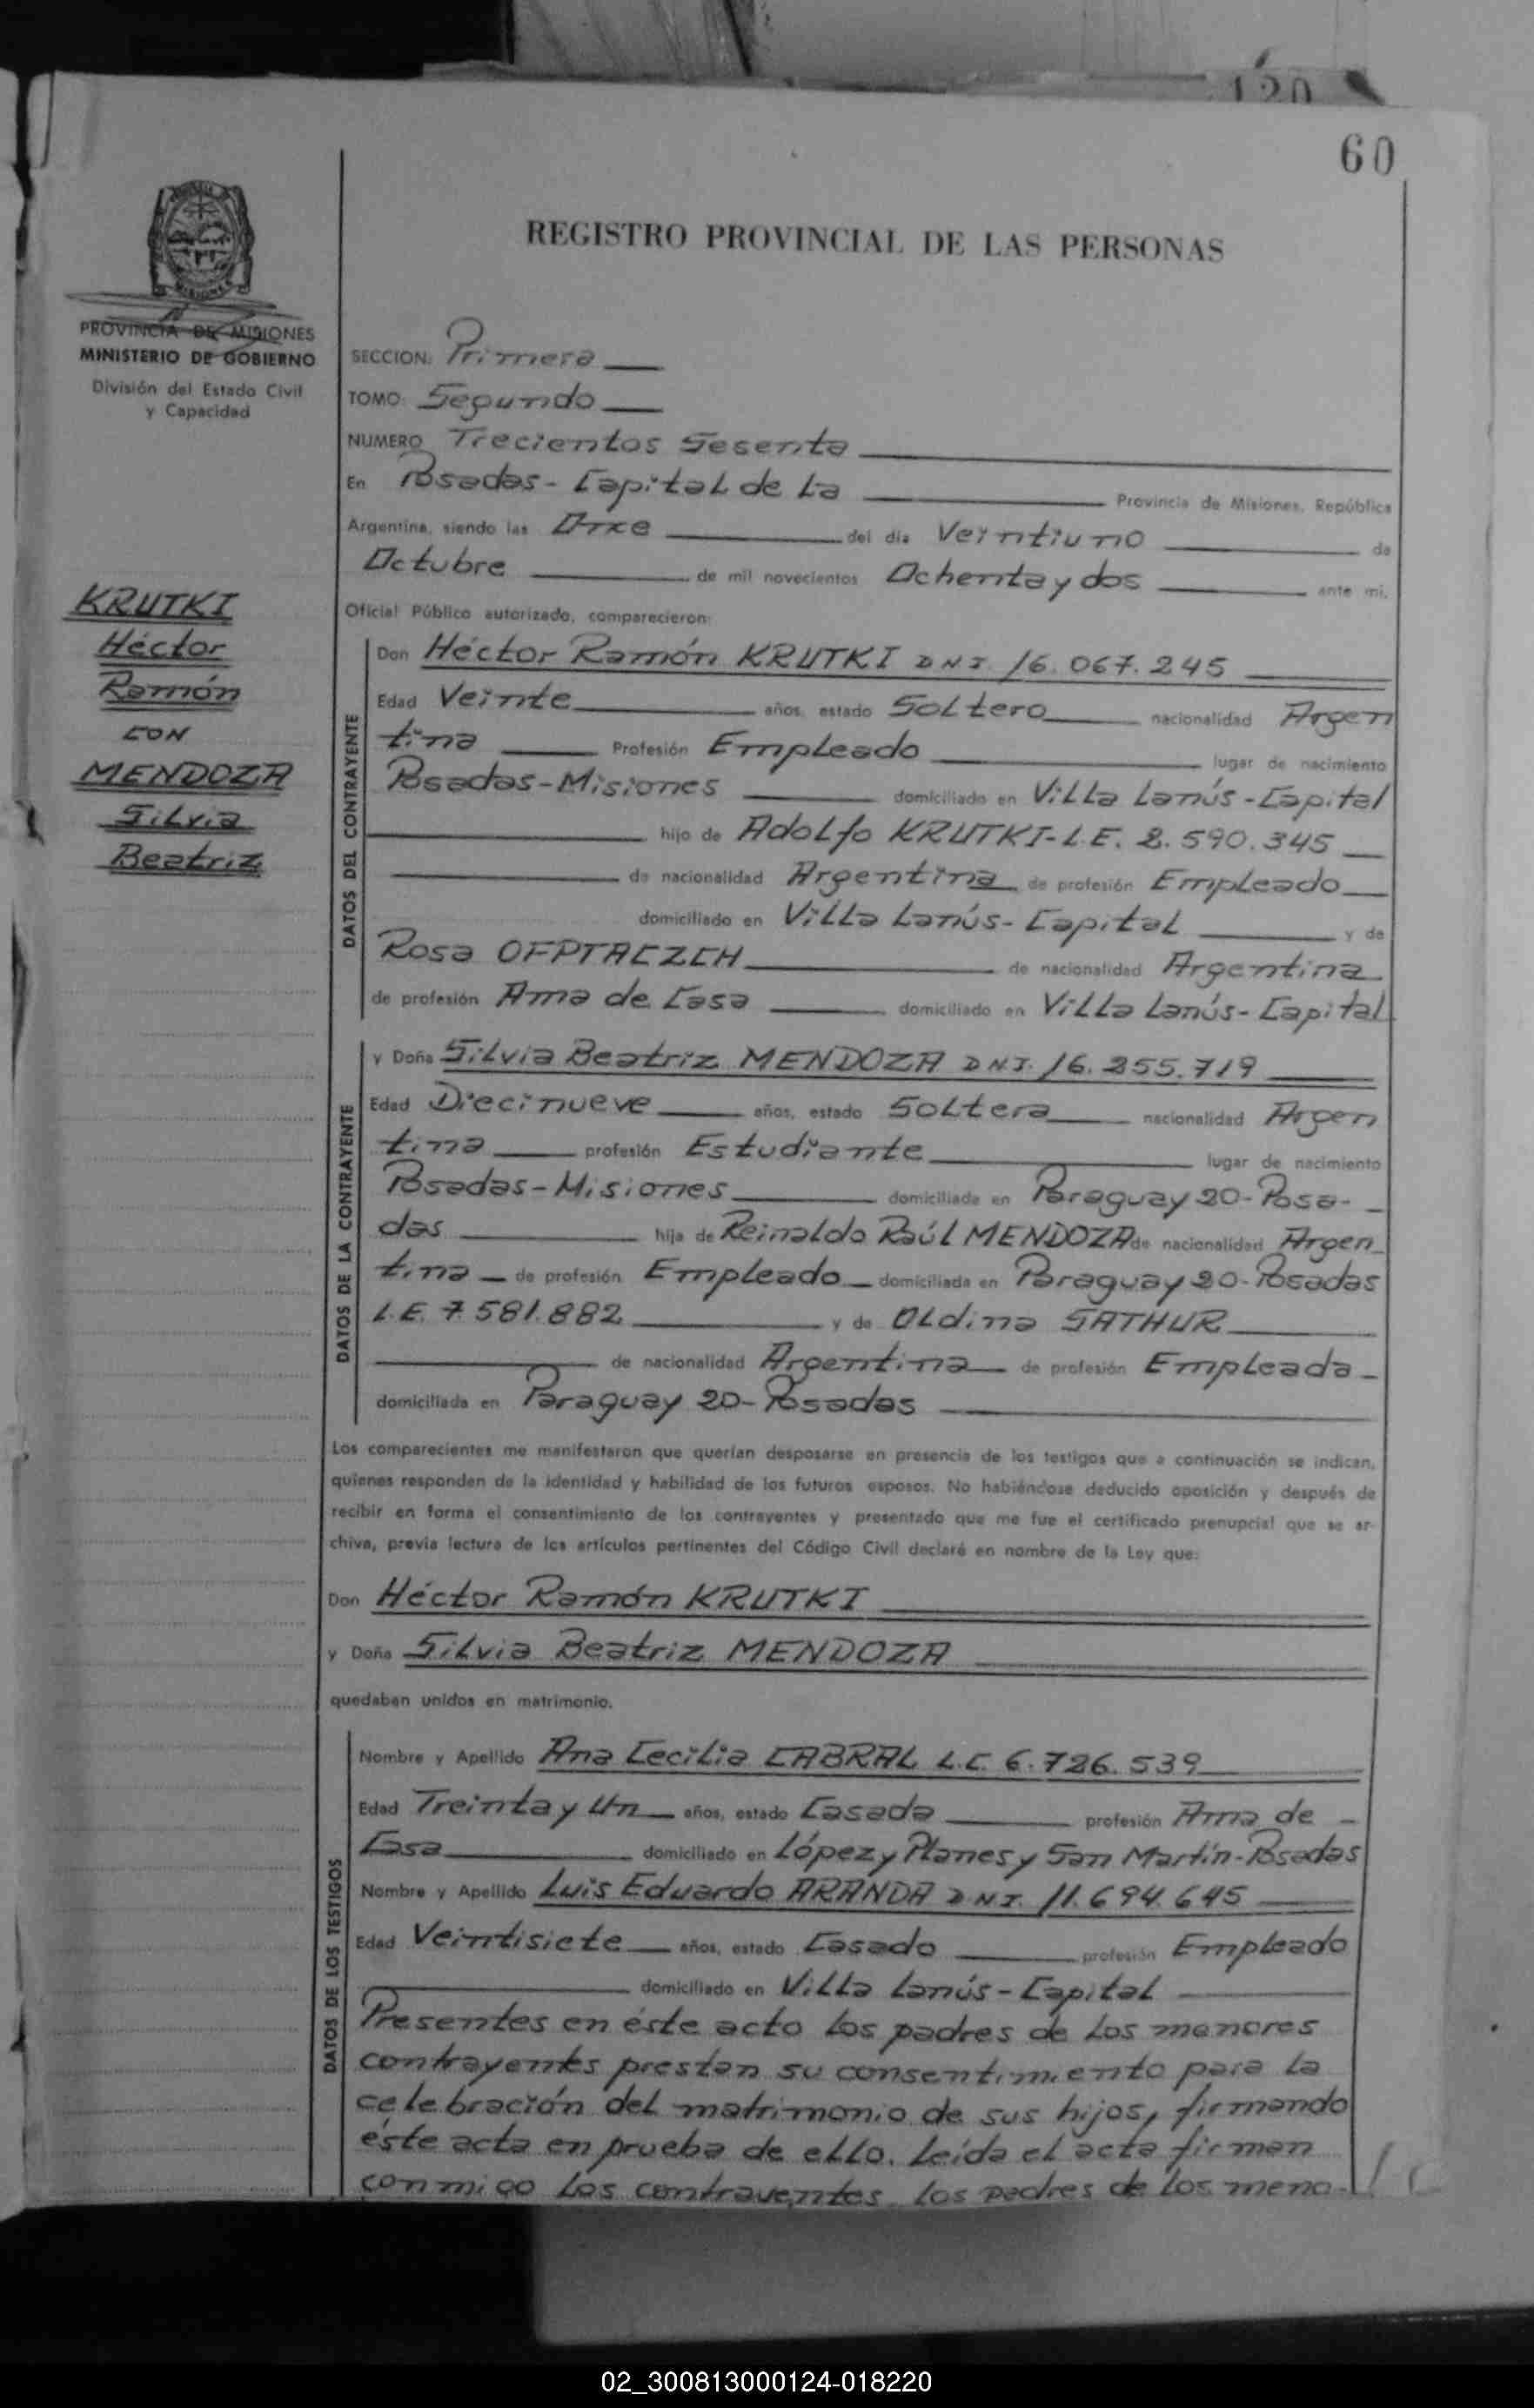 120
60
REGISTRO PROVINCIAL DE LAS PERSONAS
MISIONES
PROVINCIA DE MISIONES
MINISTERIO DE GOBIERNO
División del Estado Civil
y Capacidad
KRUTKI
Héctor
Ramón
CON
MENDOZA
Silvia
Beatriz
SECCION: Primera
TOMO: Segundo
NUMERO Trecientos Sesenta
En Posadas - Capital de La Provincia de Misiones, República
Argentina, siendo las Once del día Veintiuno de
Octubre de mil novecientos Ochenta y dos ante mi,
Oficial Público autorizado, comparecieron:
DATOS DEL CONTRAYENTE
Don Héctor Ramón KRUTKI DNI 16.067.245
Edad Veinte años, estado Soltero nacionalidad Argen
tina Profesión Empleado lugar de nacimiento
Posadas-Misiones domiciliado en Villa Lanús-Capital
hijo de Adolfo KRUTKI-L.E. 2.590.345
de nacionalidad Argentina de profesión Empleado
domiciliado en Villa Lanús-Capital y de
Rosa OFPTACZCH de nacionalidad Argentina
de profesión Ama de Casa domiciliado en Villa Lanús-Capital
DATOS DE LA CONTRAYENTE
y Doña Silvia Beatriz MENDOZA DNI. 16.255.719
Edad Diecinueve años, estado Soltera nacionalidad Argen
tina profesión Estudiante lugar de nacimiento
Posadas-Misiones domiciliada en Paraguay 20-Posa-
das hija de Reinaldo Raúl MENDOZA de nacionalidad Argen
tina de profesión Empleado domiciliada en Paraguay 20-Posadas
L.E. 7.581.882 y de Oldina SATHUR
de nacionalidad Argentina de profesión Empleada
domiciliada en Paraguay 20-Posadas
Los comparecientes me manifestaron que querían desposarse en presencia de los testigos que a continuación se indican,
quienes responden de la identidad y habilidad de los futuros esposos. No habiéndose deducido oposición y después de
recibir en forma el consentimiento de los contrayentes y presentado que me fue el certificado prenupcial que se ar-
chiva, previa lectura de los artículos pertinentes del Código Civil declaré en nombre de la Ley que:
Don Héctor Ramón KRUTKI
y Doña Silvia Beatriz MENDOZA
quedaban unidos en matrimonio.
DATOS DE LOS TESTIGOS
Nombre y Apellido Ana Cecilia CABRAL L.C. 6.726.539
Edad Treinta y Un años, estado Casada profesión Ama de
Casa domiciliado en López y Planes y San Martín-Posadas
Nombre y Apellido Luis Eduardo ARANDA D.N.I. 11.694.645
Edad Veintisiete años, estado Casado profesión Empleado
domiciliado en Villa Lanús-Capital
Presentes en éste acto los padres de los menores
contrayentes prestan su consentimiento para la
celebración del matrimonio de sus hijos, firmando
éste acta en prueba de ello. Leída el acta firman
conmigo los contrayentes los padres de los meno-
02_300813000124-018220